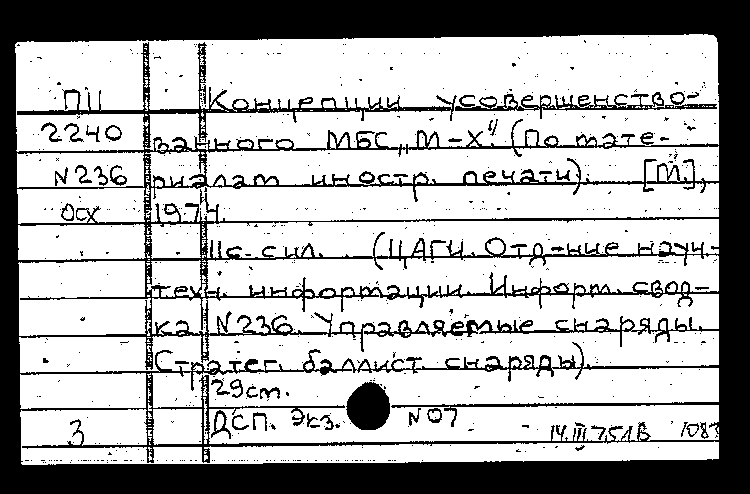 ПII Концепции усовершенство-
2240 ванного МБС „М-Х". (По мате-
N236 риалам иностр. печати). [М.],
осх 1974.
11с. с ил. (ЦАГИ. Отд-ние науч.-
техн. информации. Информ. свод-
ка N236. Управляемые снаряды.
Стратег. баллист. снаряды).
29см.
3 ДСП. Экз. N07
14.III.75.